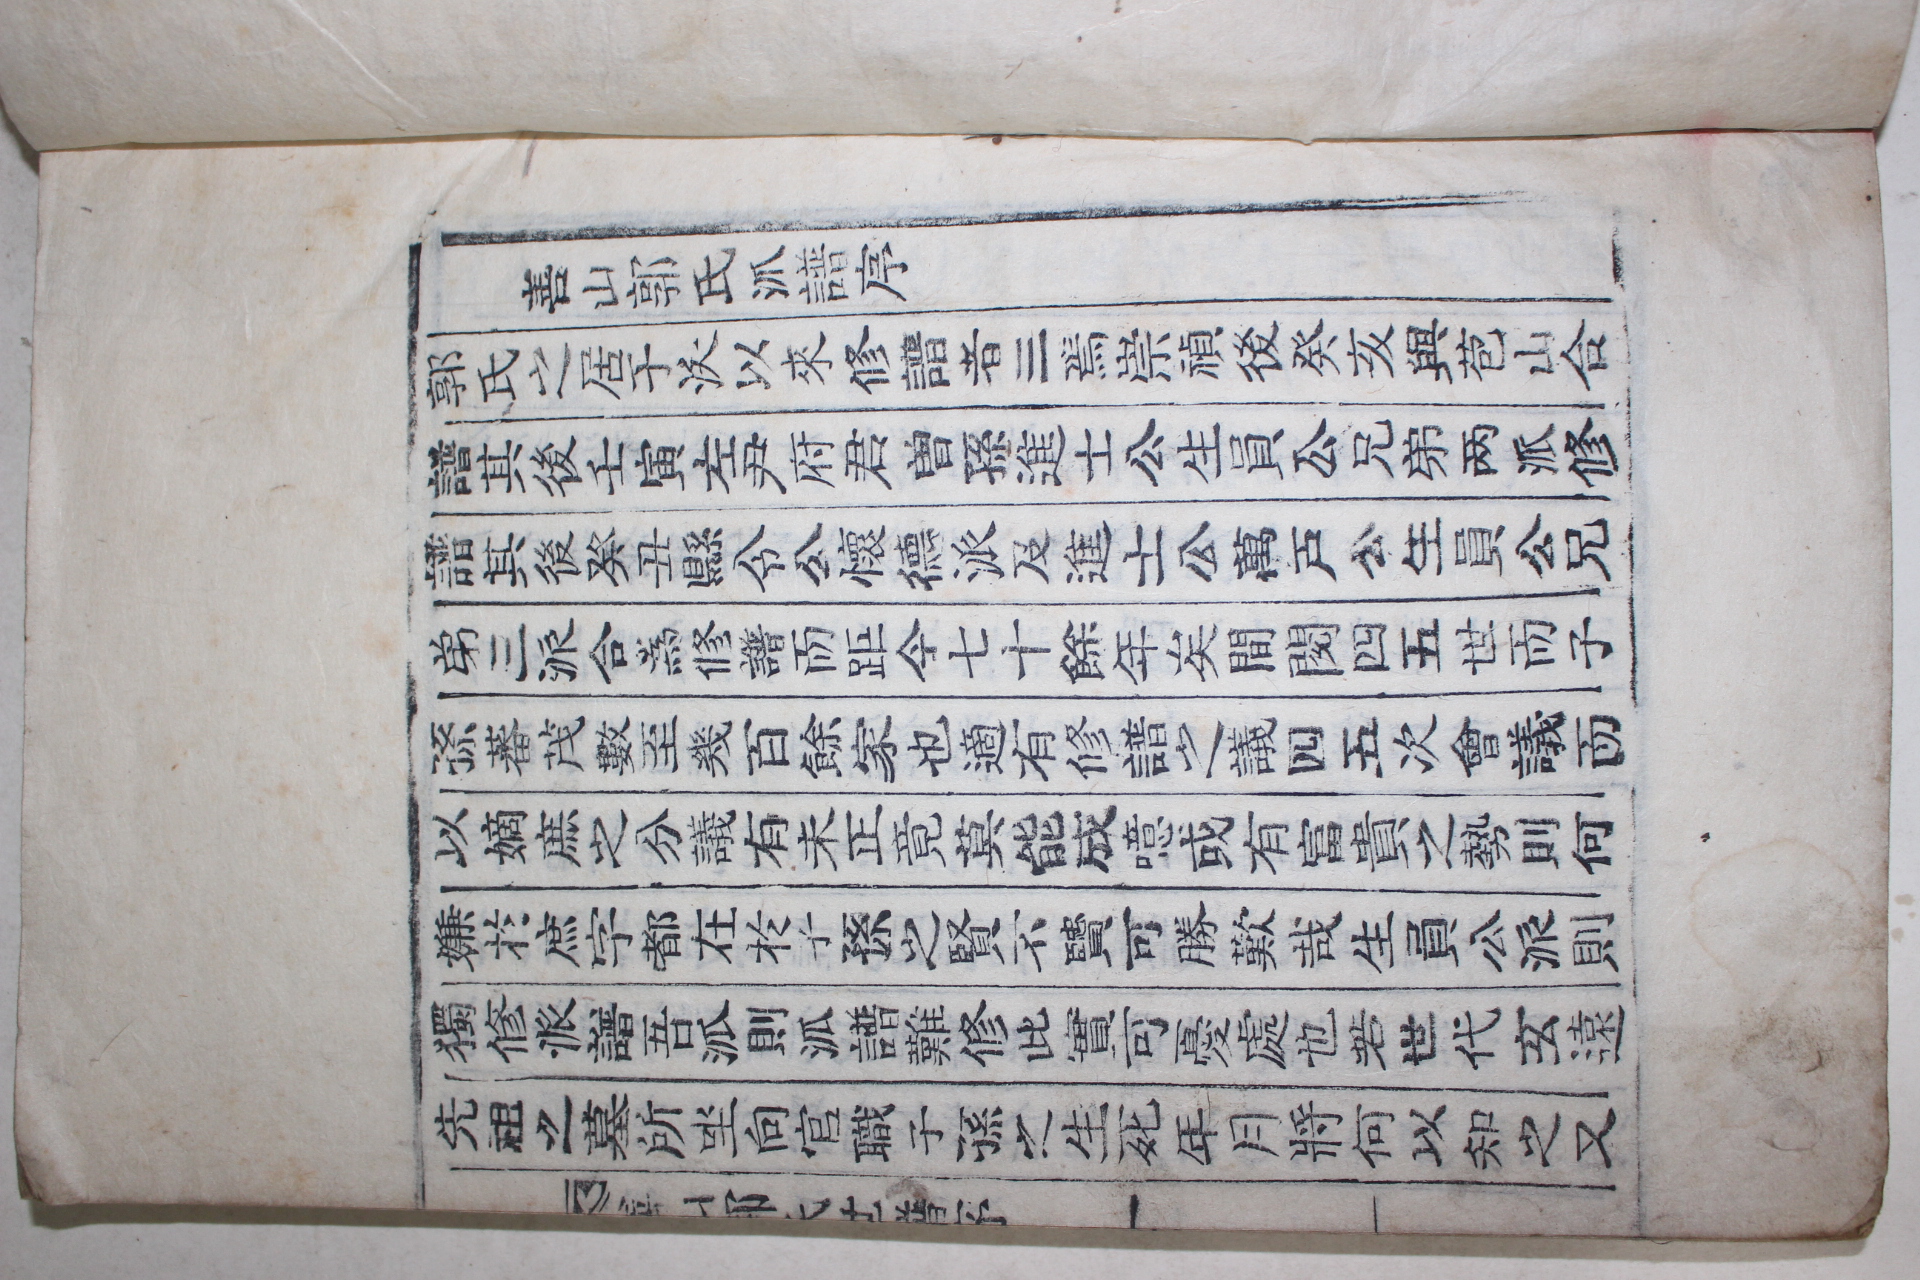 善山郭氏派譜序
郭氏之居于沃以來修譜者三焉崇禎後癸亥與苞山合
譜其後壬寅左尹府君曾孫進士公生員公兄弟兩派修
譜其後癸丑縣令公懷德派及進士公萬戶公生員公兄
弟三派合為修譜而距今七十餘年矣間閱四五世而子
孫蕃茂數至幾百餘家也適有修譜之議四五次會議而
以嫡庶之分議有未正竟莫能成噫或有富貴之勢則何
嫌於庶字都在於子孫之賢不賢可勝歎哉生員公派則
獨修派譜吾派則派譜難修此實可憂處也若世代玄遠
先祖之墓所坐向官職子孫之生死年月將何以知之又
山郭氏世譜序 一